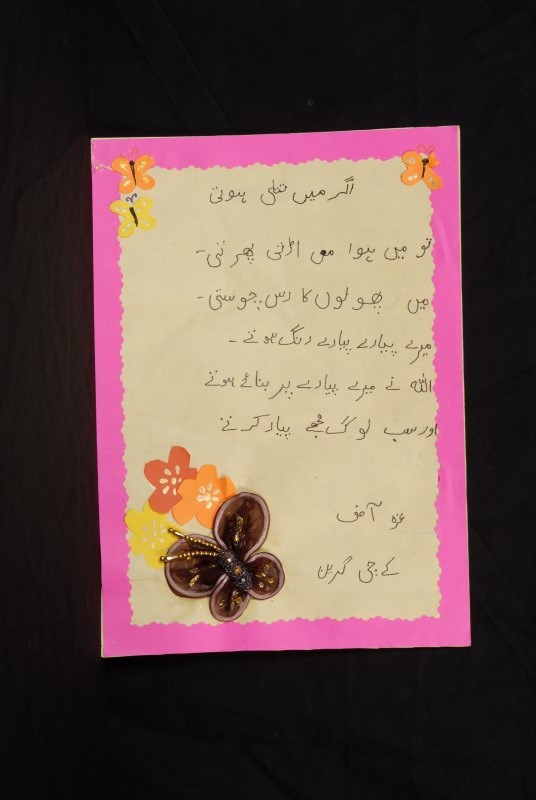 اگر میں تتلی ہوتی
تو میں ہوا میں اڑتی پھرتی۔
میں پھولوں کا رس چوستی۔
میرے پیارے پیارے رنگ ہوتے۔
اللہ نے میرے پیارے پر بنائے ہوتے
اور سب لوگ مجھے پیار کرتے
عزہ آصف
کے جی گرین